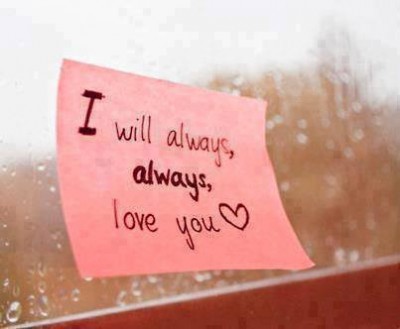 I will always,
always,
love you♡